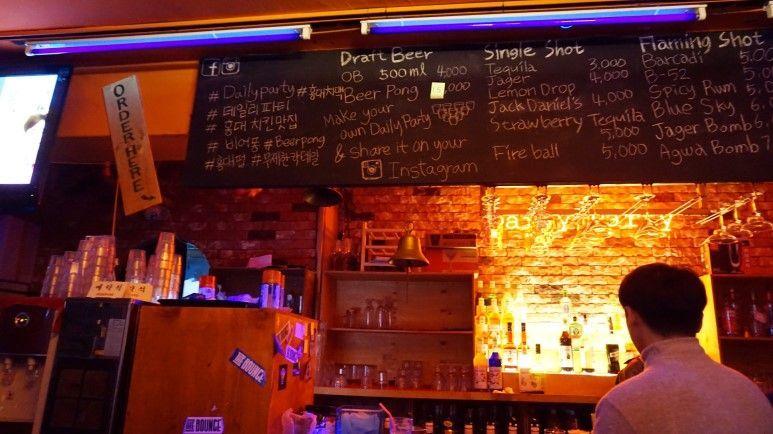 ORDER HERE
# Dailyparty #홍대치맥
# 데일리파티
# 홍대 치킨맛집
# 비어퐁 #Beerpong
#홍대펍 #무제한칵테일
Draft Beer
OB 500ml 4,000
Beer Pong
Make your
own DailyParty
& share it on your
Instagram
Single Shot
Tequila 3,000
Jager 4,000
Lemon Drop
Jack Daniel's 4,000
Strawberry Tequila
5,000
Fire ball 5,000
Flaming Shot
Barcadi
B-52
Spicy Rum
Blue Sky
Jager Bomb
Agwa Bomb
예약석
THE BOUNCE
THE BOUNCE